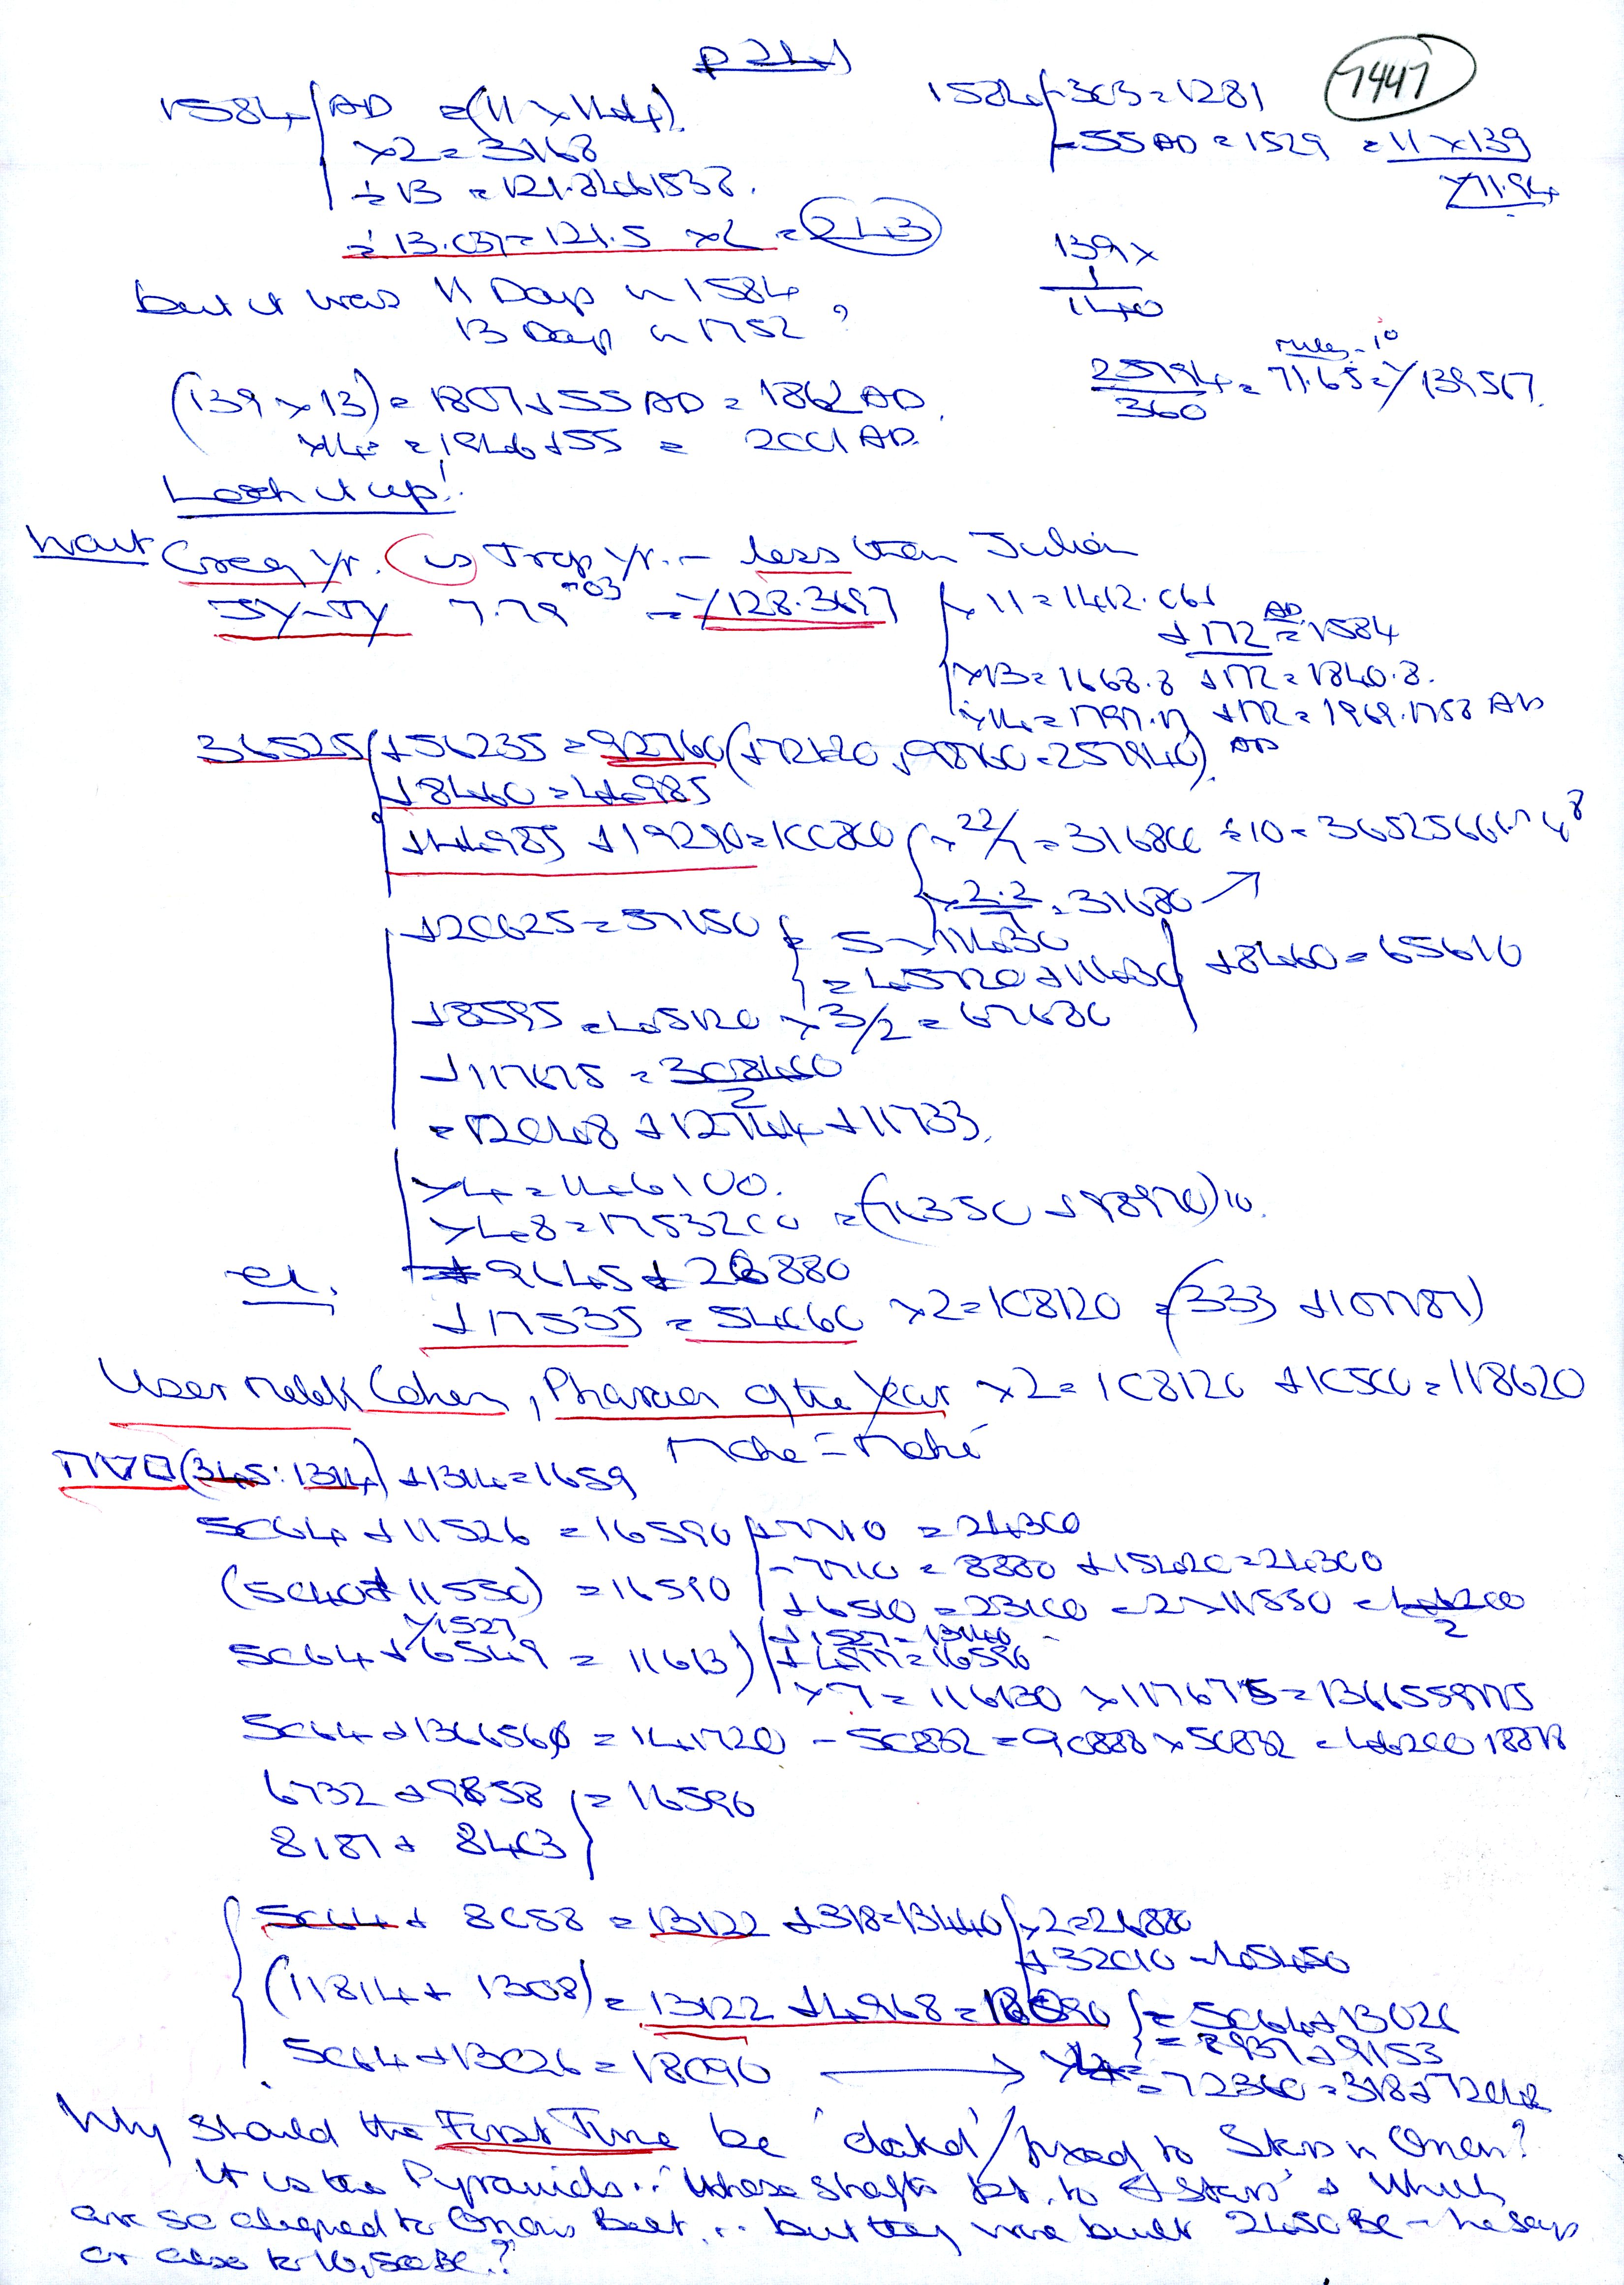 p 243
7447
1584 / AD = (11 x 144).
x2 = 3168
÷ 13 = 121.8461538.
÷ 13.037 = 121.5 x 2 = 243
1584 - 303 = 1281
- 55 AD = 1529 = 11 x 139
139 x
1
140
but it was 11 Days in 1584
13 Days in 1752 ?
25794 / 360 = 71.65 = / 139567.
(139 x 13) = 1807 + 55 AD = 1862 AD.
x14 = 1946 + 55 = 2001 AD.
Look it up!
Wait Greg Yr. (is) Trop Yr. - less than Julian
JY-TY 7.79 -03 = /128.3697
x 11 = 1412.061
+ 172 AD = 1584
x13 = 1668.8 + 172 = 1840.8.
x14 = 1797.17 + 172 = 1969.1758 AD
36525 + 56235 = 92760 (+72120 + 98760 = 257940) AD
+ 8460 = 44985
+ 44985 + 19290 = 100800
x 22/7 = 316800 ÷ 10 = 365256617 48
x 2.2/7 = 31680
+ 20625 = 57150
= 5 x 11430
= 45720 + 11430
+ 8460 = 65610
+ 8595 = 45120 x 3/2 = 67680
+ 117675 = 308400 / 2
= 12048 + 12744 + 11733.
x 4 = 146100.
x 48 = 1753200 = (76350 + 98970) 10.
ex. 9645 + 26880
+ 17535 = 54060 x2 = 108120 = (333 + 107787)
User Melek Cohen, Pharaoh of the Year x2 = 108120 + 10500 = 118620
(345 : 1314) + 1314 = 1659
5064 + 11526 = 16590 + 7710 = 24300
- 7710 = 8880 + 15420 = 24300
(5040 + 11550) = 16590
+ 6510 = 23100 = 2 x 11550 = 46200 / 2
/1527
5064 + 6549 = 11613)
+ 1527 = 13140
+ 4977 = 16590
x 7 = 116130 x 117675 = 1366559775
5064 + 136656 = 141720 - 50832 = 90888 x 50832 = 4620018818
6732 + 9858 } = 16590
8187 + 8403
5064 + 8058 = 13122 + 318 = 13440 x2 = 26880
+ 32010 = 45450
(11814 + 1308) = 13122 + 4968 = 18090 = 5064 + 13026
= 8937 + 9153
5064 + 13026 = 18090 → x4 = 72360 = 318 + 72042
Why should the First Time be 'dated' / fixed to Stars in Orion?
It is the Pyramids.. whose shafts pt. to 4 Stars & which
are so aligned to Orions Belt... but they were built 2450 BC - he says
or also to 10,500 BC.?